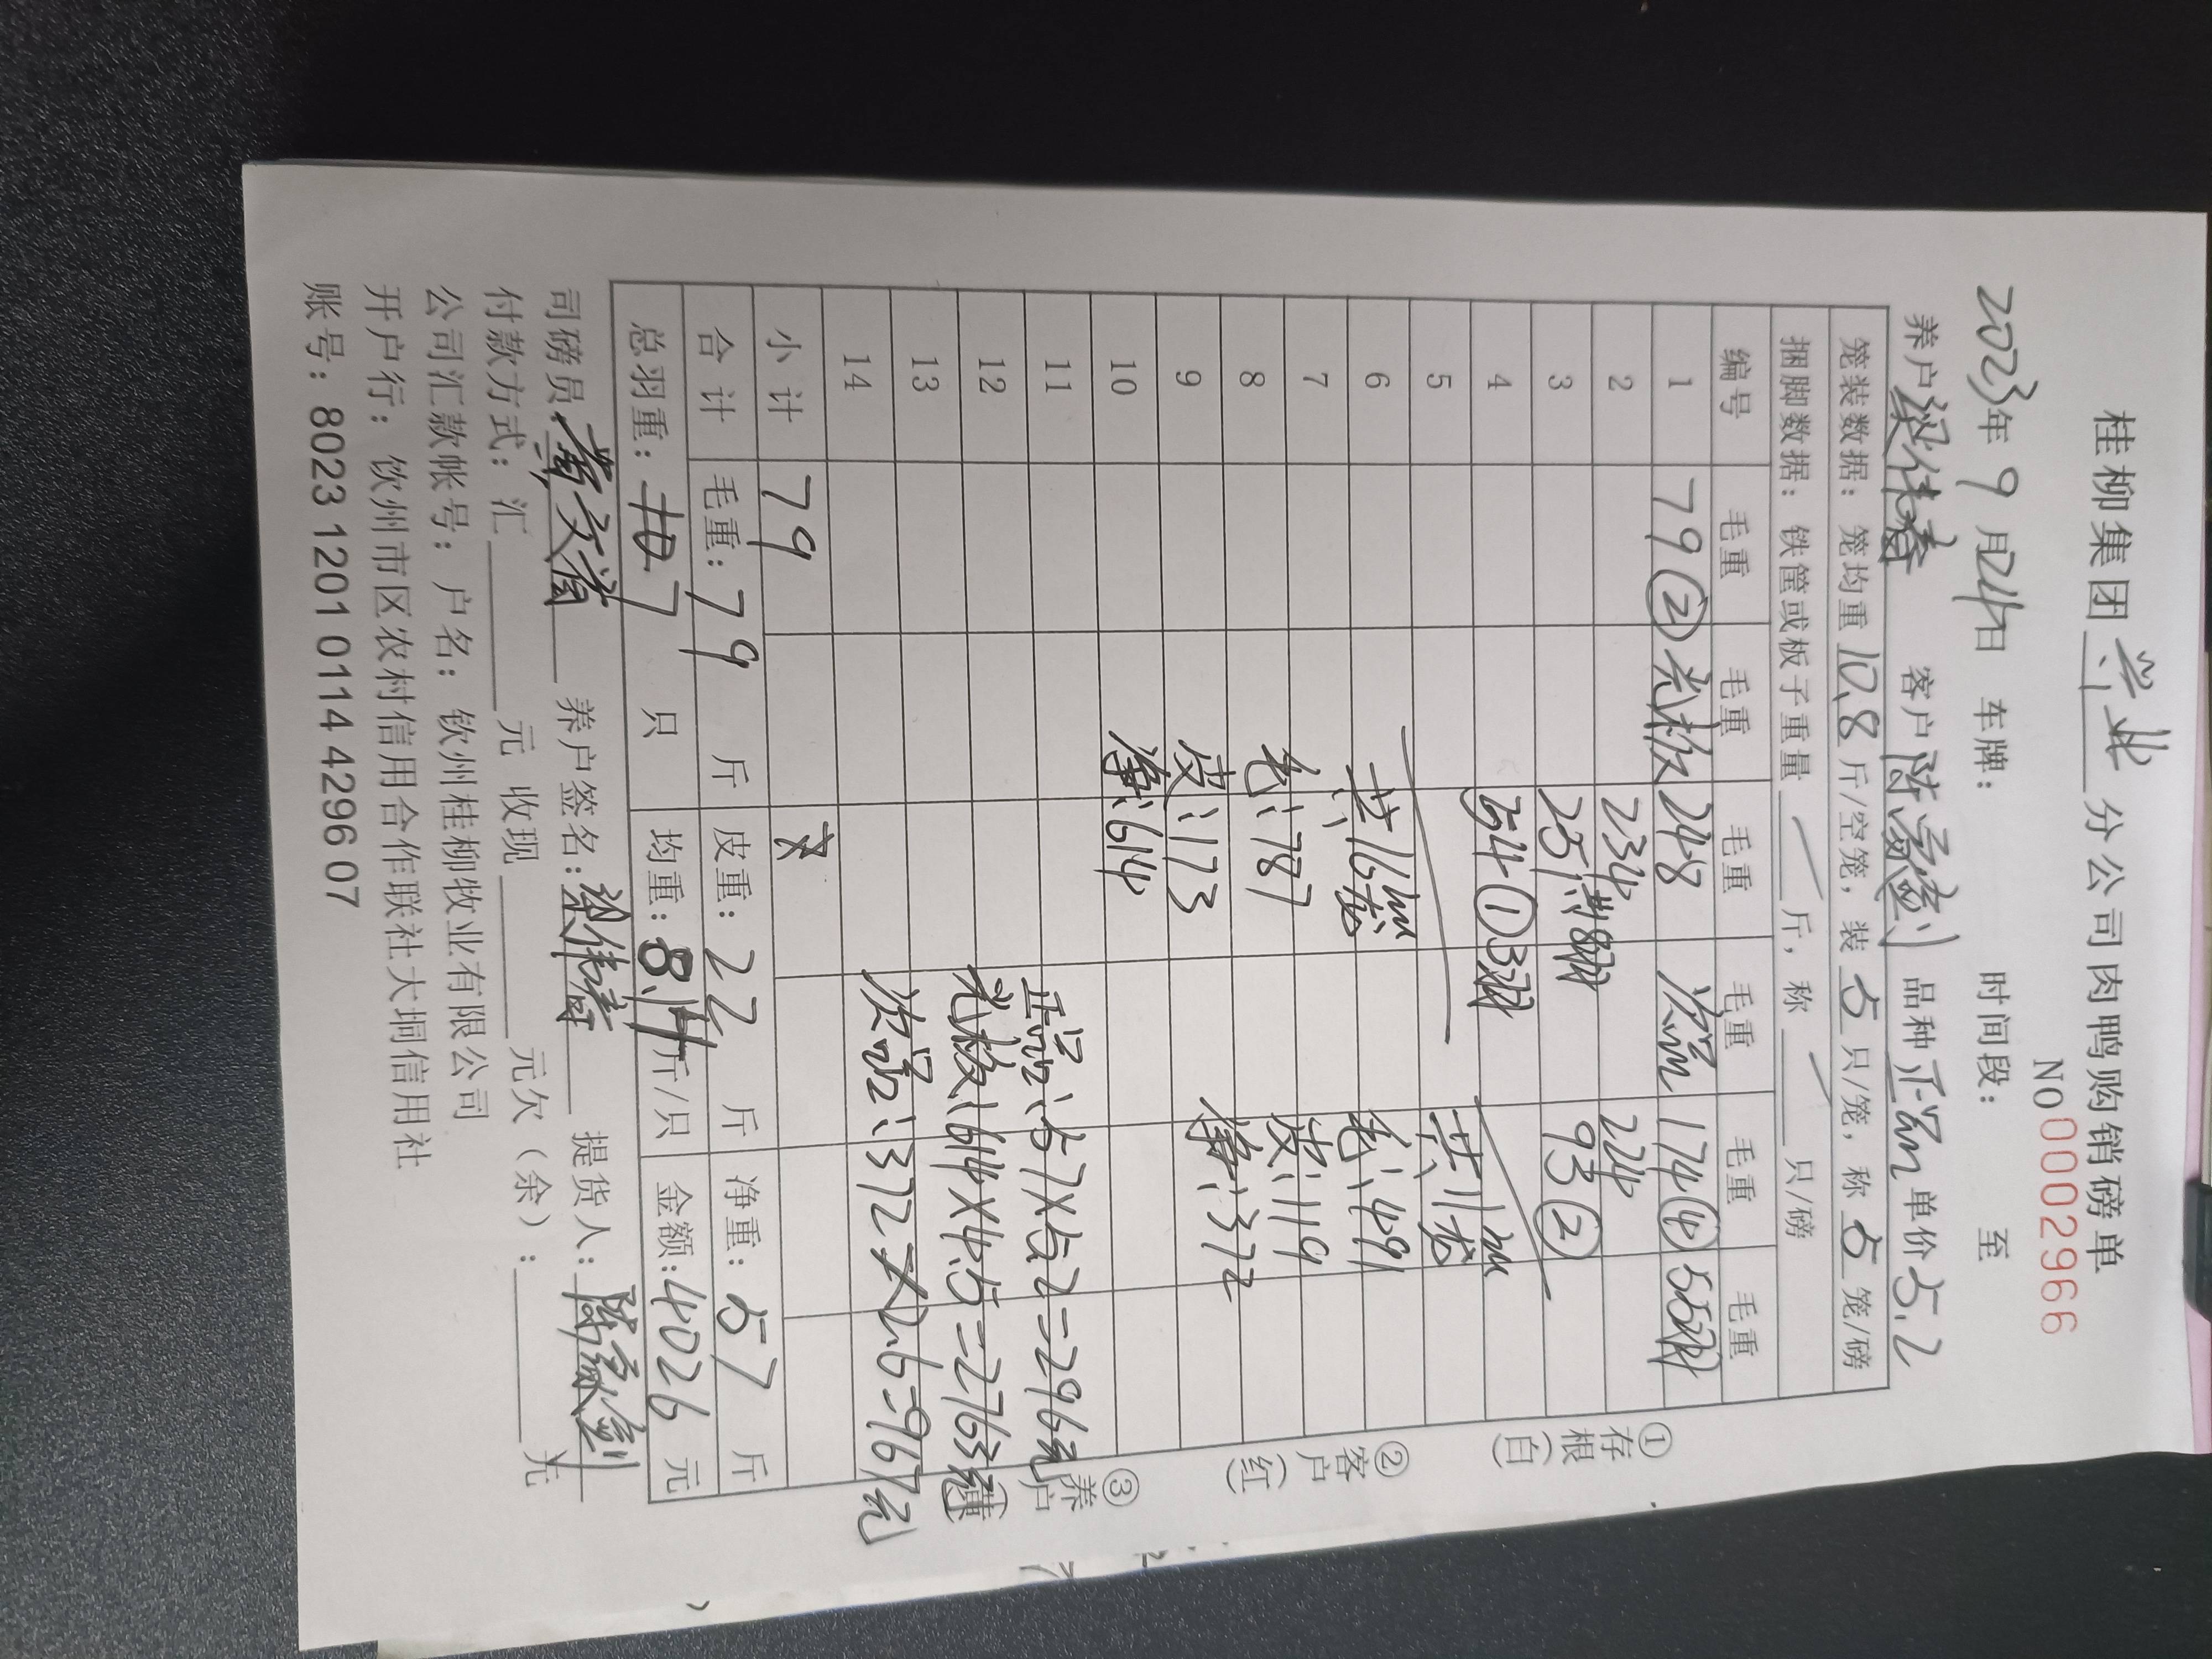 桂柳集团 兴业 分公司肉鸭购销磅单
NO 0002966
2023年 9 月24日 车牌： 时间段： 至
养户 梁伟春 客户 陈家剑 品种 正品 单价 5.2
笼装数据：笼均重 10.8 斤/空笼，装 5 只/笼，称 5 笼/磅
捆脚数据：铁筐或板子重量 斤，称 只/磅
编号 毛重 毛重 毛重 毛重 毛重 毛重
1 79② 光枚 248 次品 174④ 55羽
2 234 224
3 251 共78羽 93②
4 254① 3羽
5 共11
6 共16 毛：491
7 皮：119
8 毛：787 净：372
9 皮：173
10 净：614
11 正品：57×5.2=296元
12 光枚：614×4.5=2763元
13
14 次品：372×2.6=967元
小计 79
合计 毛重：79 斤 皮重：22 斤 净重：57 斤
总羽重：7 只 均重：8.14斤/只 金额：4026 元
司磅员： 养户签名：梁伟春 提货人：陈家剑
付款方式：汇 元 收现 元欠（余）： 元
公司汇款帐号：户名：钦州桂柳牧业有限公司
开户行：钦州市区农村信用合作联社大垌信用社
账号：8023 1201 0114 4296 07
①存根（白）
②客户（红）
③养户